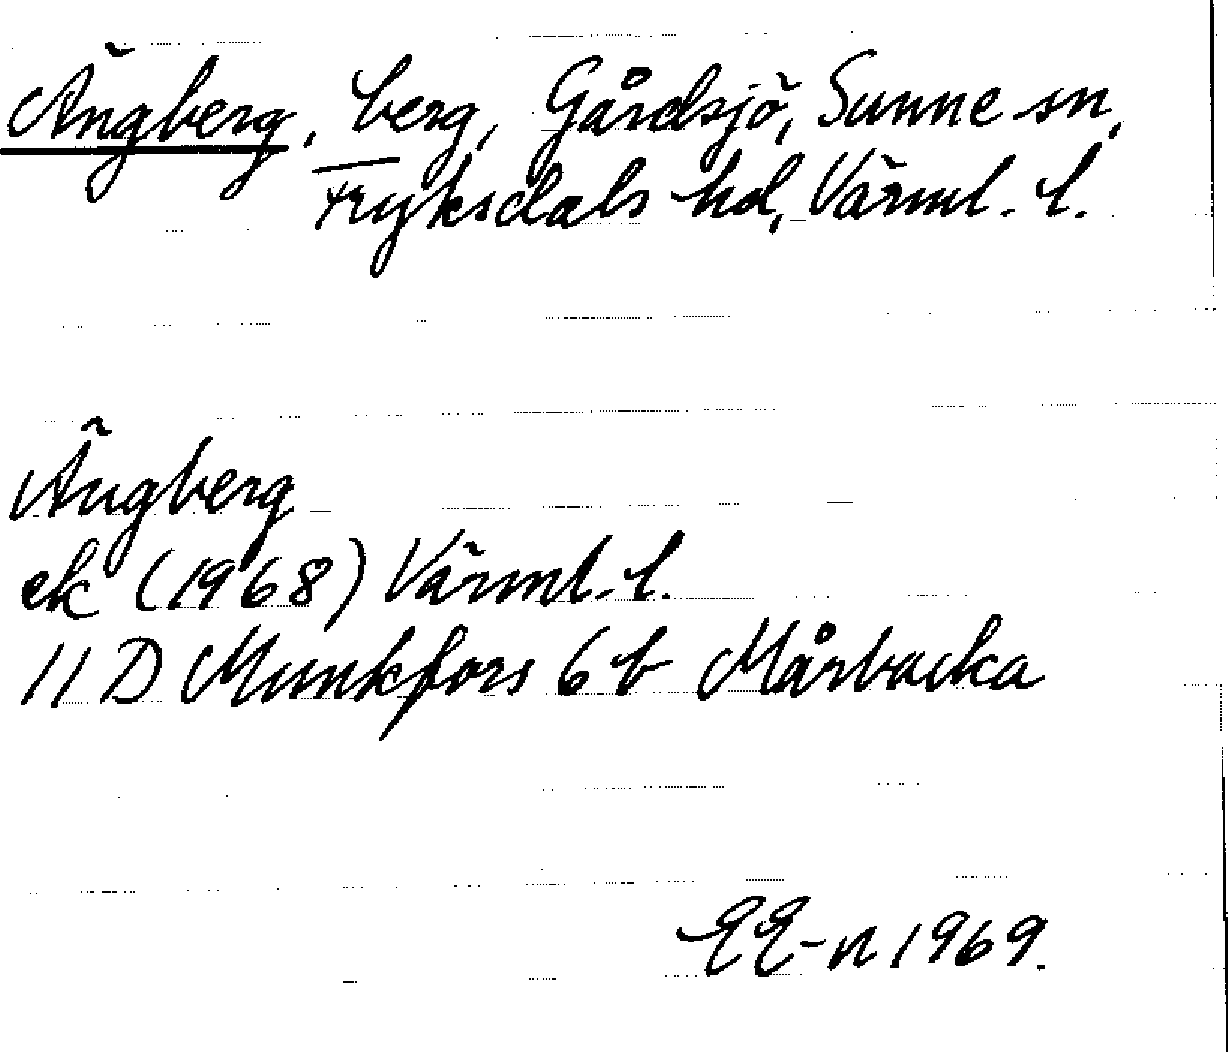 Ängberg, berg, Gårdsjö, Sunne sn,
Fryksdals hd, Värml. l.
Ängberg
ek (1968) Värml. l.
11 D Munkfors 6 b Mårbacka
EE-n 1969.